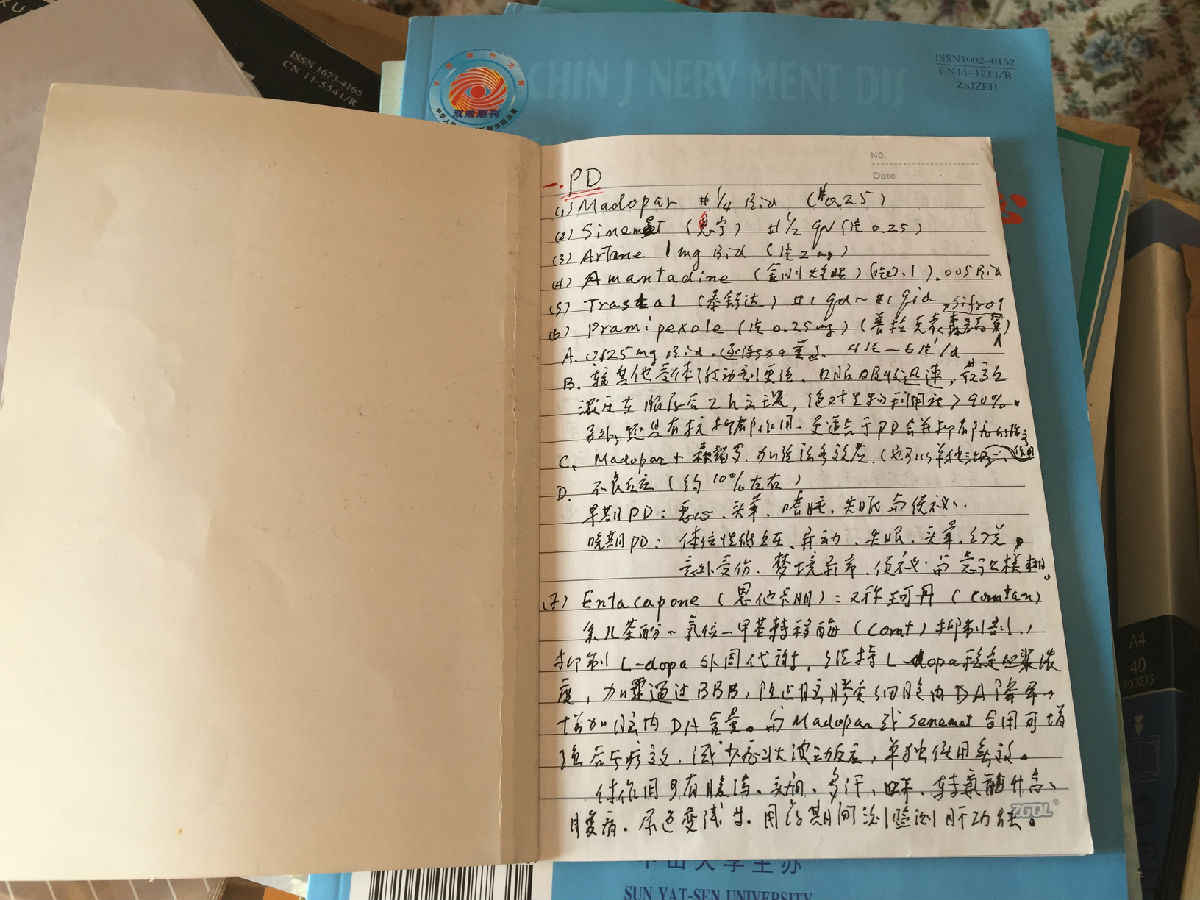 ISSN 1673-4165
CN 11-5541/R
CHIN J NERV MENT D
ISSN1002-0152
CN44-1213/R
ZSJZFB1
双效期刊
NO.
Date
一. PD
(1) Madopar #1/4 Bid (#0.25)
(2) Sinemet (息宁) #1/2 qd (片0.25)
(3) Artane 1mg Bid (片2mg)
(4) Amantadine (金刚烷胺) (片0.1) .005 Bid
(5) Trastal (泰舒达) #1 qd~#1 qid
Sifrol
(6) Pramipexole (片0.25mg) (普拉克索
A. 0.125mg Bid.
B. 较其他受体激动剂更强. 口服吸收迅速, 最高
浓度在服后2h出现, 绝对生物利用度>90%.
另外, 还具有抗抑郁作用. 更适合于PD合并抑郁
C. Madopar+
D. 不良反应 (约10%左右)
早期PD: 恶心、头晕、嗜睡、失眠与便秘.
晚期PD: 体位性低血压、异动、失眠、头晕、幻觉,
意外受伤、梦境异常、便秘与视物模糊.
(7) Entacapone (恩他卡朋): 又称珂丹 (Comtan)
系儿茶酚-氧位-甲基转移酶 (Comt) 抑制剂,
抑制L-dopa外周代谢, 维持L-dopa稳定血浆浓
度, 加强通过BBB, 阻止脑胶质细胞内DA降解,
增加脑内DA含量. 与Madopar或Senemet合用可增
强后者疗效, 减少症状波动反应, 单独使用无效.
付作用有腹泻、头痛、多汗、口干、转氨酶升高、
腹痛、尿色变浅等. 用药期间须监测肝功能.
ZGPL
中山大学主办
SUN YAT-SEN UNIVERSITY
A4
40
POCKETS